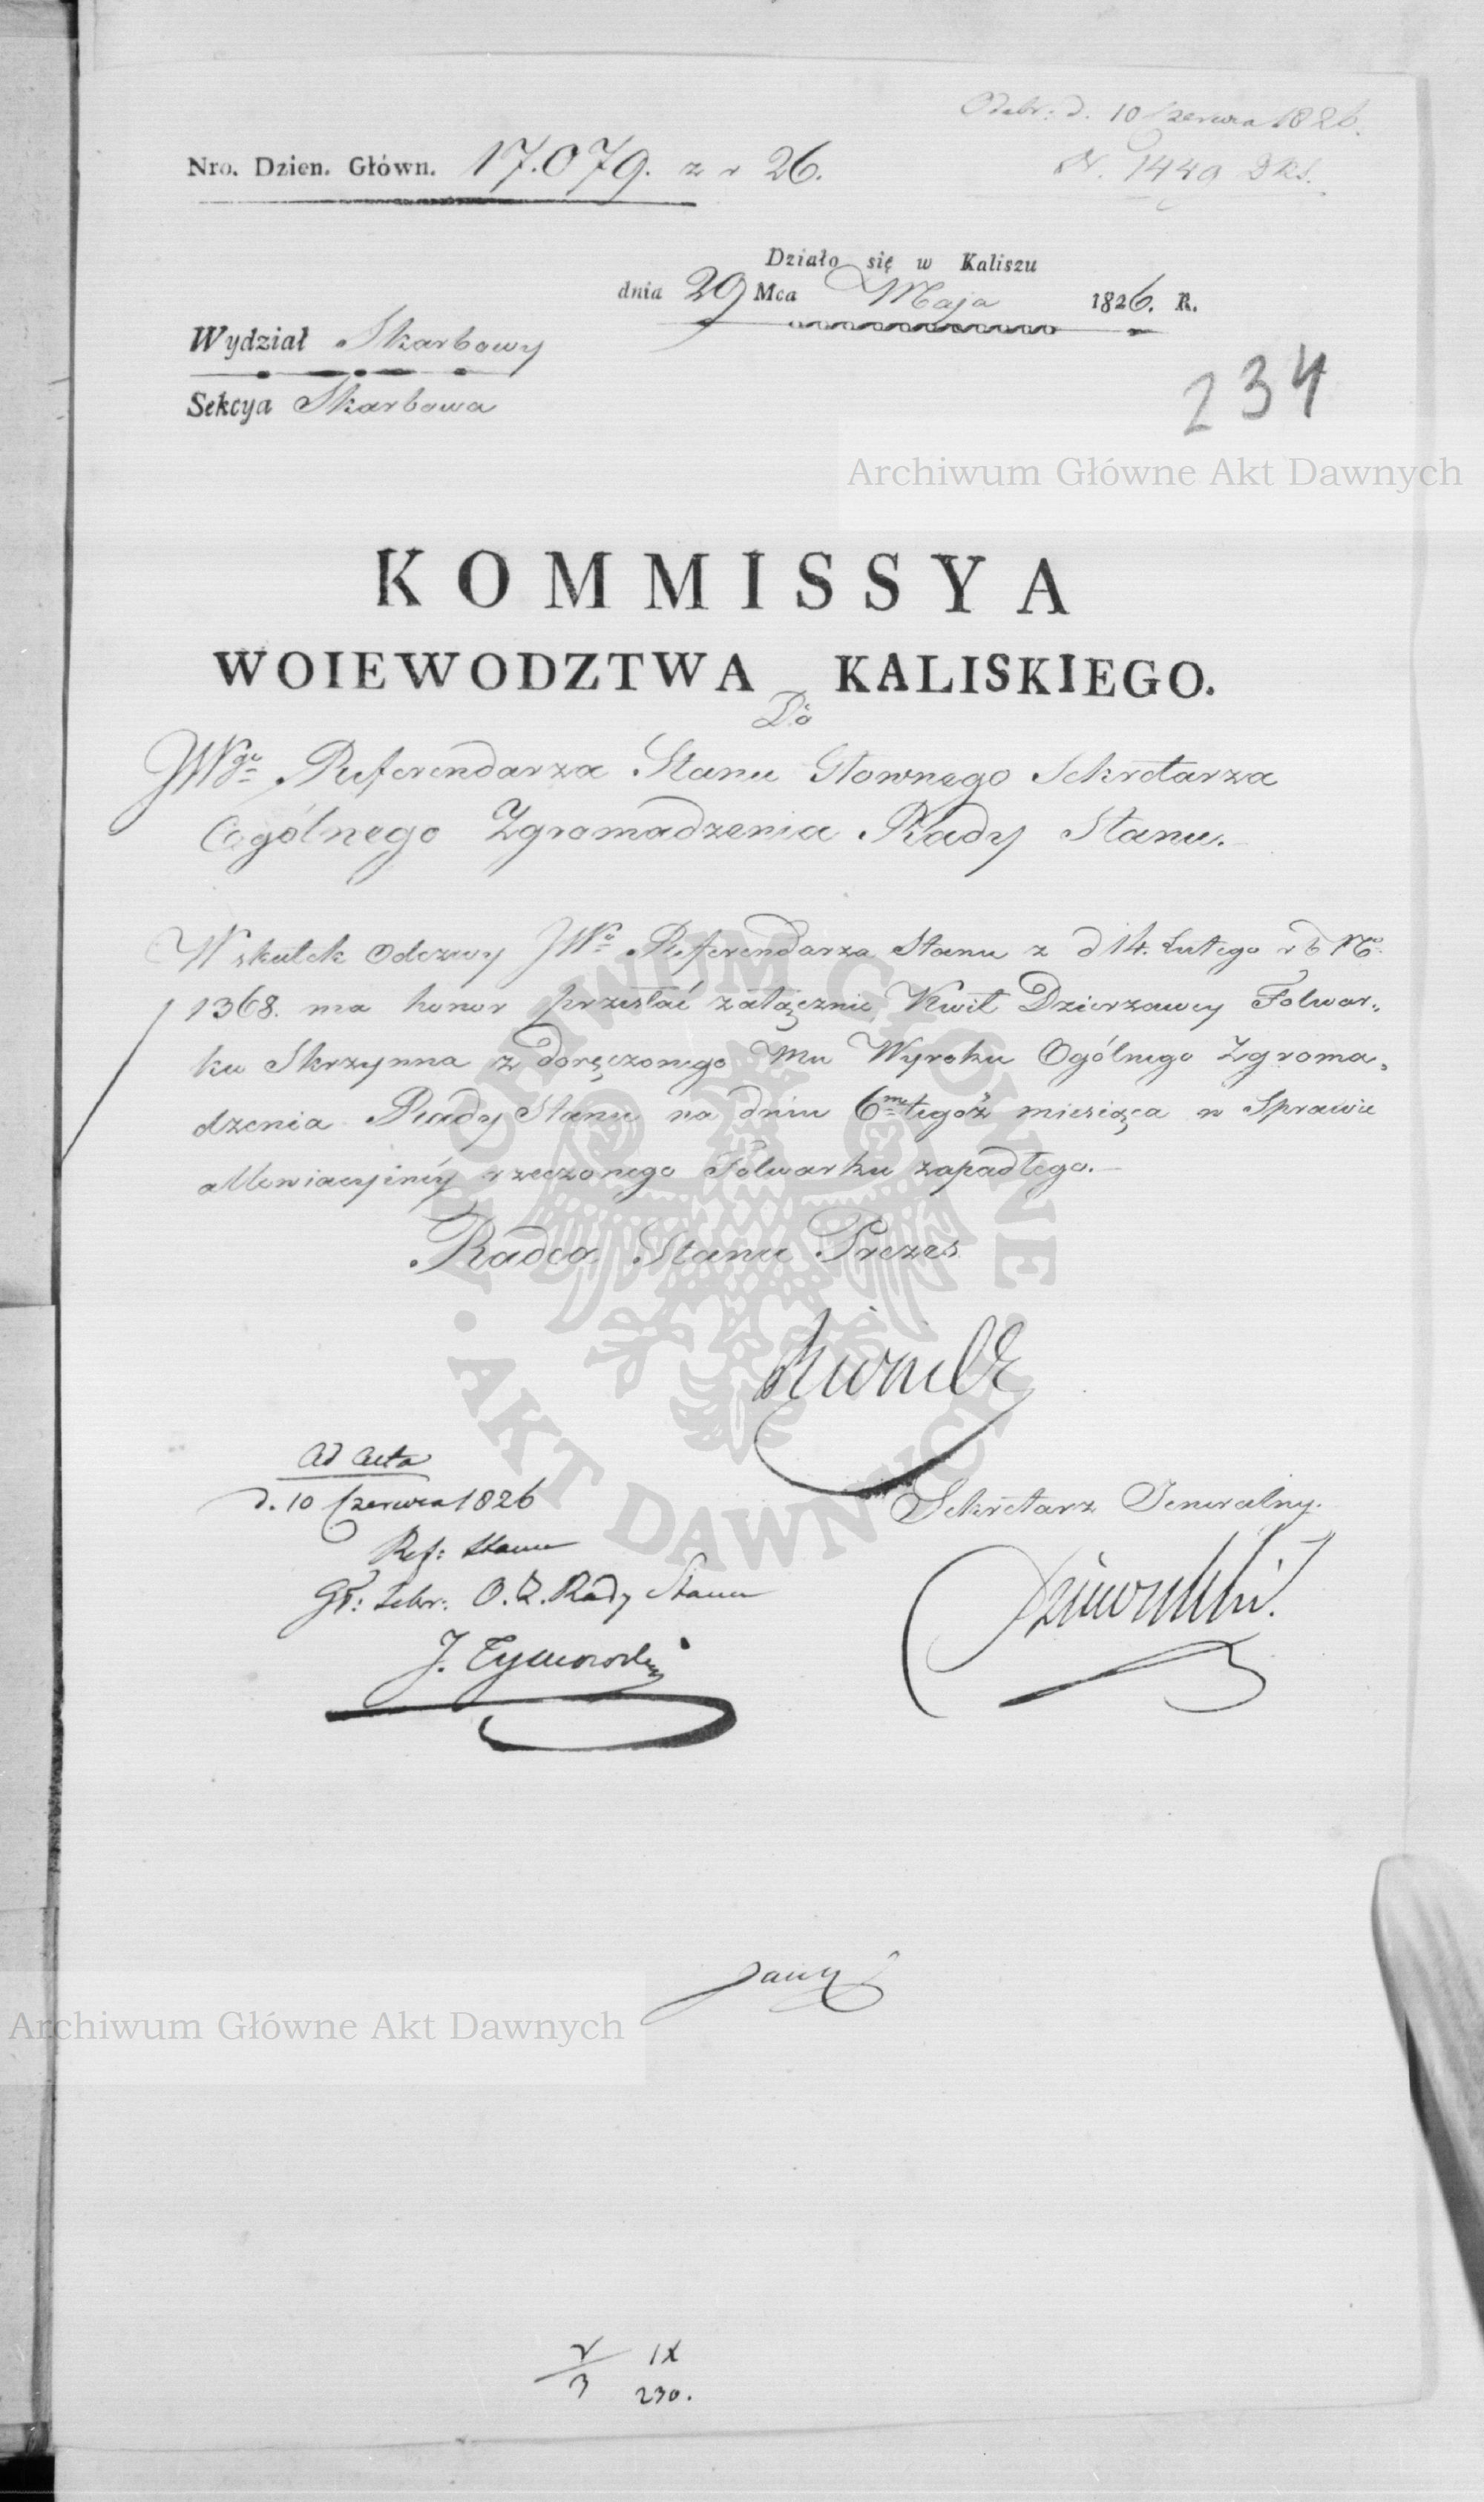 Odebr: d. 10 Czerwca 1826.
N. 1449 Dks.
Nro. Dzien. Główn. 17.079. z r 26.
Działo się w Kaliszu
dnia 29 Mca Maja 1826. R.
Wydział Skarbowy
Sekcya Skarbowa
234
Archiwum Główne Akt Dawnych
KOMMISSYA
WOIEWODZTWA KALISKIEGO.
Do
JWgo Referendarza Stanu Głownego Sekretarza
Ogólnego Zgromadzenia Rady Stanu.
W skutek Odezwy JWo Referendarza Stanu z d 14. Lutego r b No
1368. ma honor przesłać załącznie Kwit Dzierzawcy Folwar„
ku Skrzynna z doręczonego Mu Wyroku Ogólnego Zgroma„
dzenia Rady Stanu na dniu 6me tegoż miesiąca w Sprawie
allewiacyinéy rzeczonego Folwarku zapadłego.
Radca Stanu Prezes
Ad Acta
d. 10 Czerwca 1826
Ref: Stanu
Gł: Sekr: O. Z. Rady Stanu
J. Tymowski
Sekretarz Jeneralny.
ARCHIWUM GŁÓWNE · AKT DAWNYCH ·
Archiwum Główne Akt Dawnych
IX
3 230.